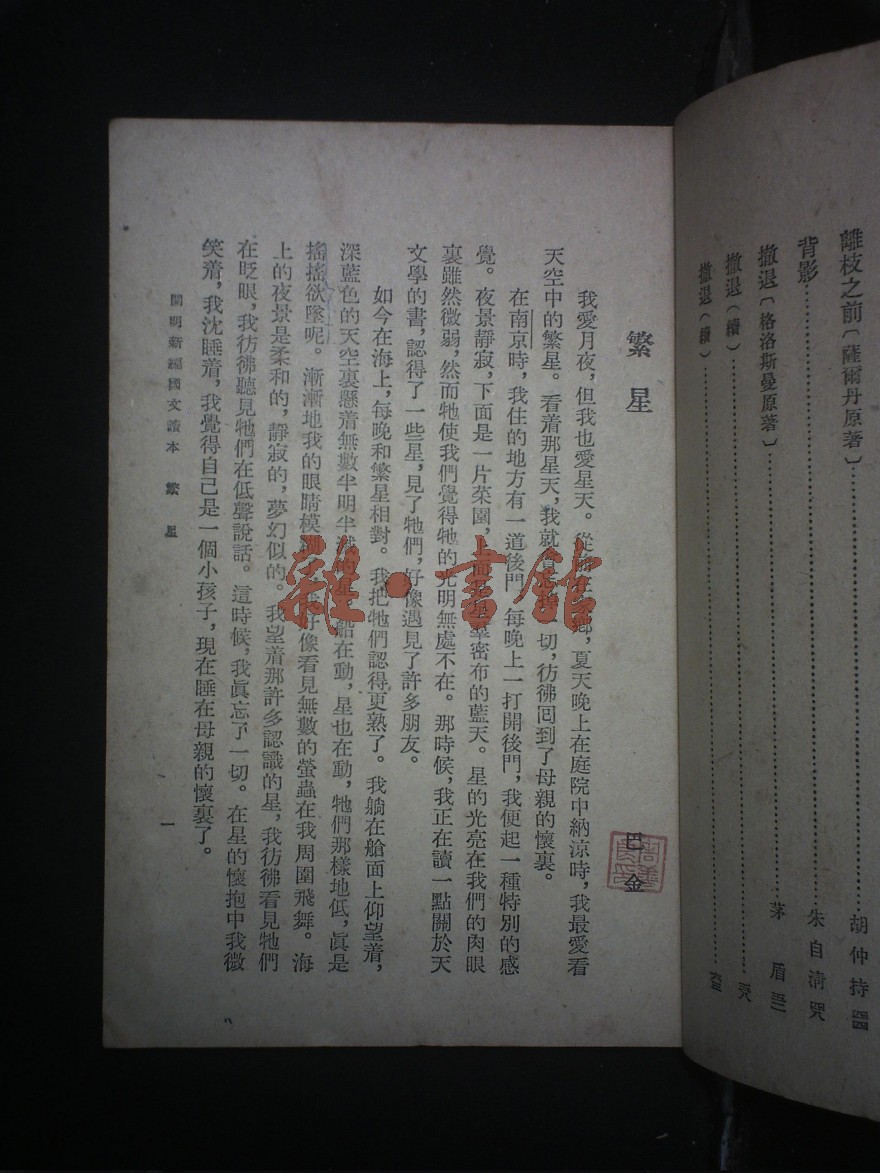 離枝之前〔薩爾丹原著〕 胡仲持
背影 朱自清
撤退〔格洛斯曼原著〕 茅盾
撤退(續)
撤退(續)
繁星 巴金
我愛月夜,但我也愛星天。從鄉,夏天晚上在庭院中納涼時,我最愛看
天空中的繁星。看着那星天,我就切,彷彿回到了母親的懷裏。
在南京時,我住的地方有一道後門,每晚上一打開後門,我便起一種特別的感
覺。夜景靜寂,下面是一片菜園,上面是星羣密布的藍天。星的光亮在我們的肉眼
裏雖然微弱,然而牠使我們覺得牠的光明無處不在。那時候,我正在讀一點關於天
文學的書,認得了一些星,見了牠們,好像遇見了許多朋友。
如今在海上,每晚和繁星相對。我把牠們認得更熟了。我躺在艙面上仰望着,
深藍色的天空裏懸着無數半明半船在動,星也在動,牠們那樣地低,眞是
搖搖欲墜呢。漸漸地我的眼睛模好像看見無數的螢蟲在我周圍飛舞。海
上的夜景是柔和的,靜寂的,夢幻似的。我望着那許多認識的星,我彷彿看見牠們
在眨眼,我彷彿聽見牠們在低聲說話。這時候,我眞忘了一切。在星的懷抱中我微
笑着,我沈睡着,我覺得自己是一個小孩子,現在睡在母親的懷裏了。
開明新編國文讀本 繁星 一
雜·書館